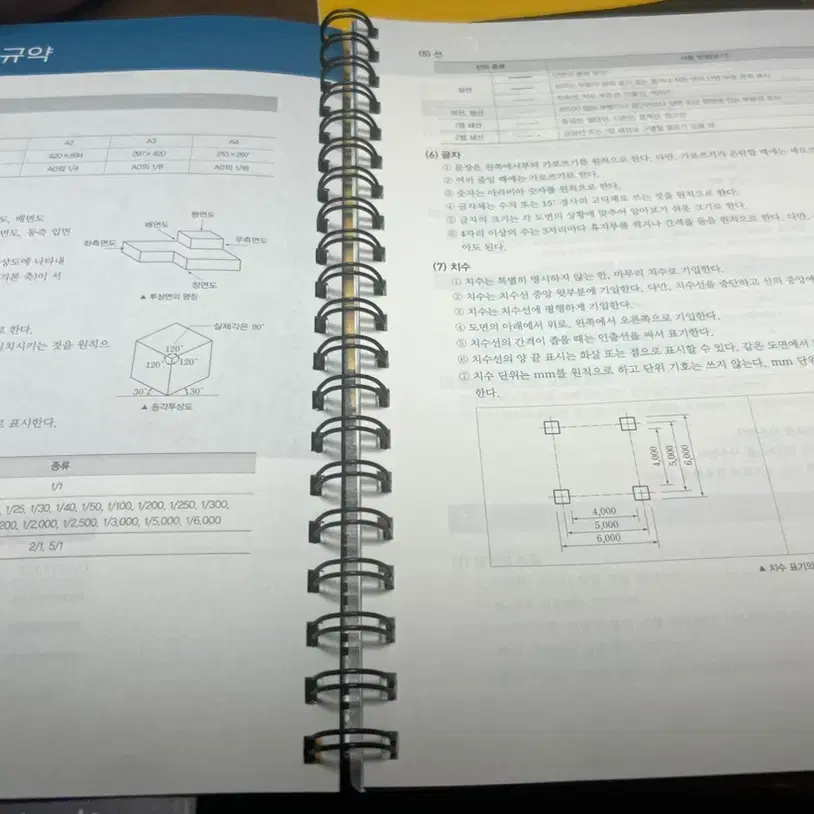 규약
A2 A3 A4
420×594 297×420 210×297
A0의 1/4 A0의 1/8 A0의 1/16
도, 배면도
면도, 좌측 입면
상도에 나타내
로 한다.
일치시키는 것을 원칙으
로 표시한다.
평면도
배면도
좌측면도
우측면도
정면도
▲ 투상면의 명칭
실제각은 90°
120°
120° 120°
30° 30°
▲ 등각투상도
종류
1/1
1/25, 1/30, 1/40, 1/50, 1/100, 1/200, 1/250, 1/300,
1/2,000, 1/2,500, 1/3,000, 1/5,000, 1/6,000
2/1, 5/1
(5) 선
(6) 글자
① 문장은 왼쪽에서부터 가로쓰기를 원칙으로 한다. 다만, 가로쓰기가 곤란할 때에는 세로쓰
② 여러 줄일 때에는 가로쓰기로 한다.
③ 숫자는 아라비아 숫자를 원칙으로 한다.
④ 글자체는 수직 또는 15° 경사의 고딕체로 쓰는 것을 원칙으로 한다.
⑤ 글자의 크기는 각 도면의 상황에 맞추어 알아보기 쉬운 크기로 한다.
⑥ 4자리 이상의 수는 3자리마다 휴지부를 찍거나 간격을 둠을 원칙으로 한다. 다만,
아도 된다.
(7) 치수
① 치수는 특별히 명시하지 않는 한, 마무리 치수로 기입한다.
② 치수는 치수선 중앙 윗부분에 기입한다. 다만, 치수선을 중단하고 선의 중앙에
③ 치수는 치수선에 평행하게 기입한다.
④ 도면의 아래에서 위로, 왼쪽에서 오른쪽으로 기입한다.
⑤ 치수선의 간격이 좁을 때는 인출선을 써서 표기한다.
⑥ 치수선의 양 끝 표시는 화살 또는 점으로 표시할 수 있다. 같은 도면에서
⑦ 치수 단위는 mm를 원칙으로 하고 단위 기호는 쓰지 않는다. mm 단위
한다.
4,000
5,000
6,000
4,000
5,000
6,000
▲ 치수 표기의